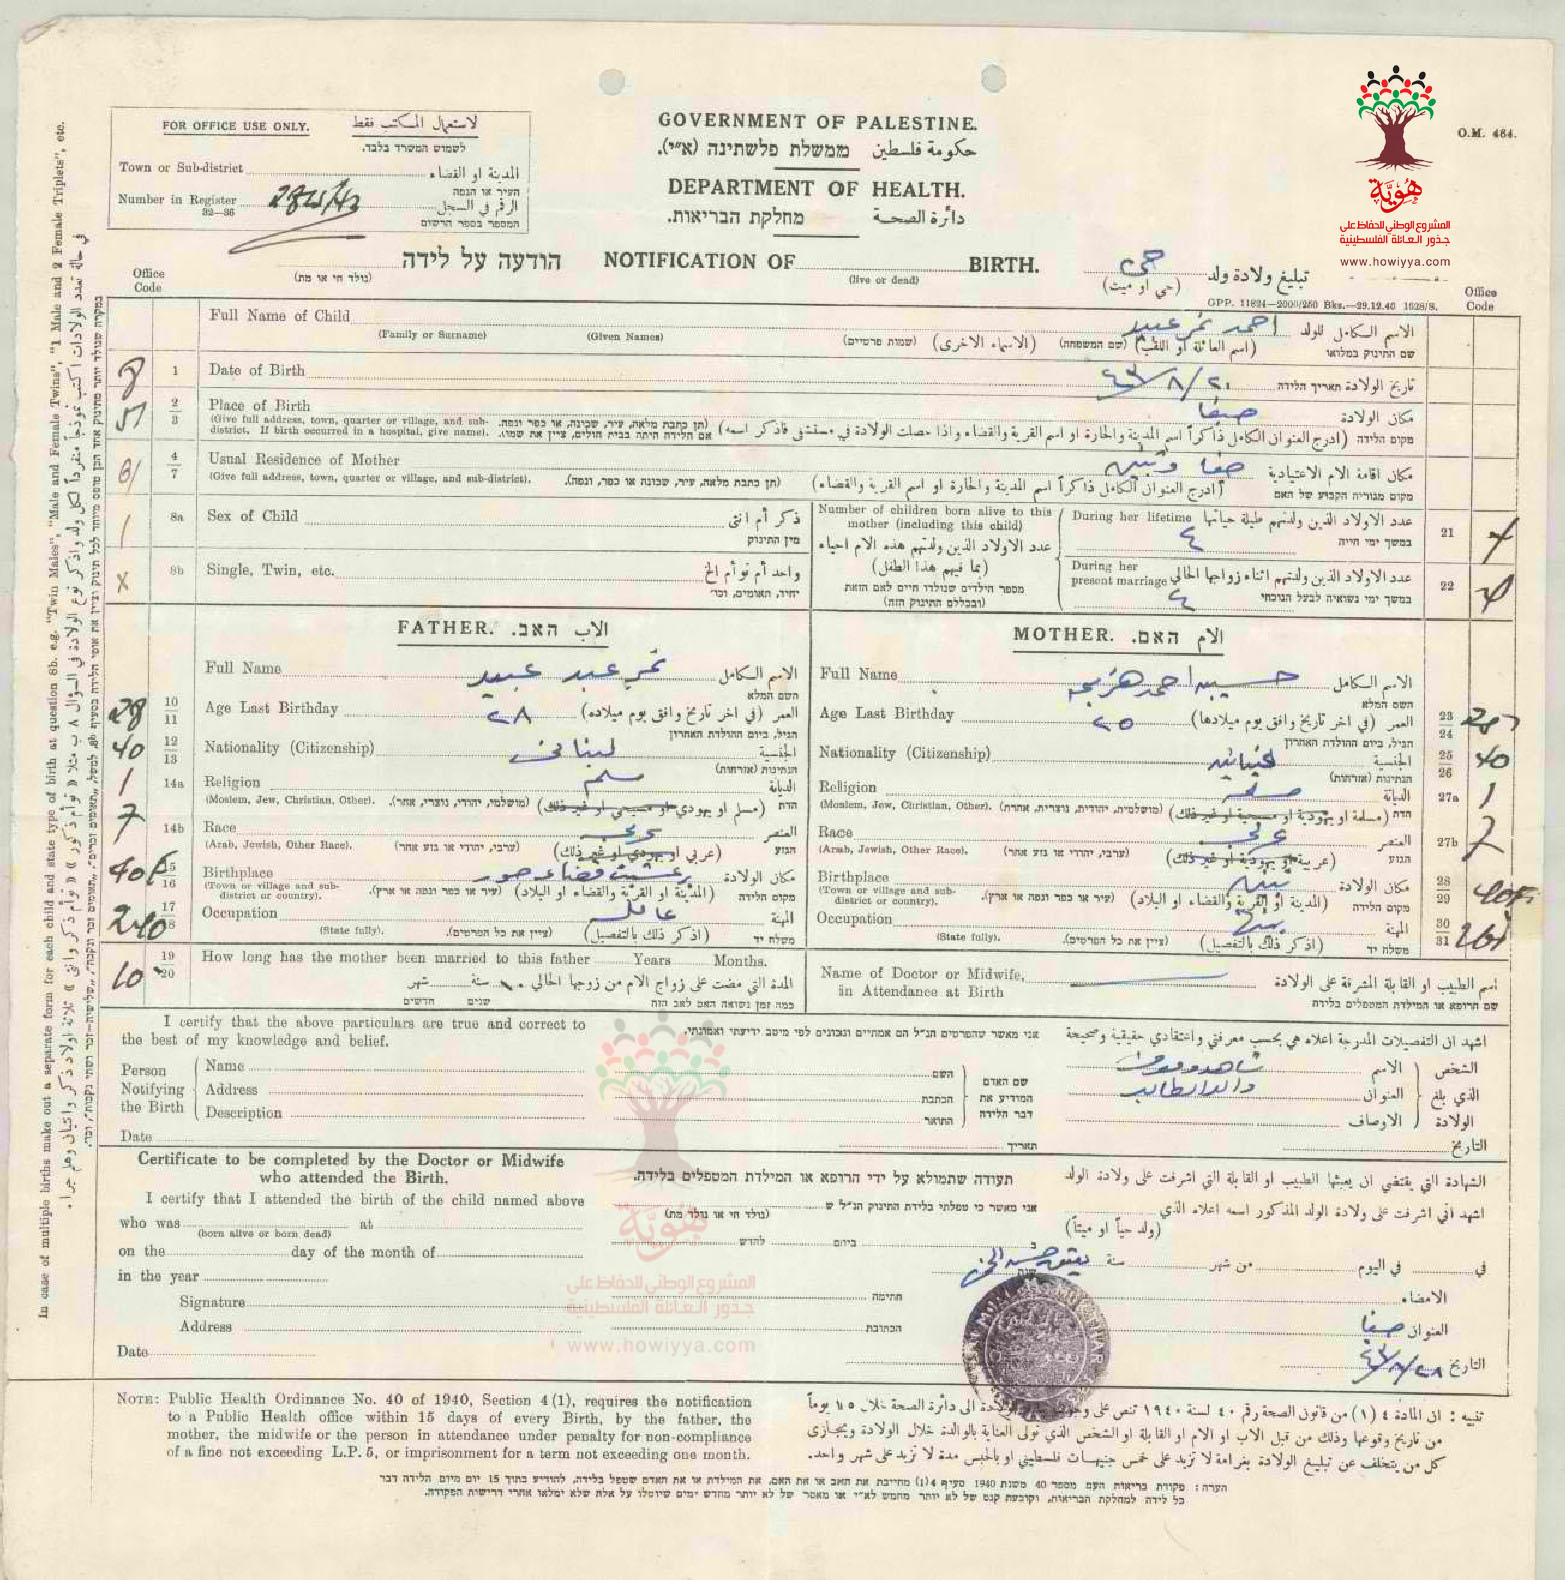 O.M. 464.
هُوِيَّة
المشروع الوطني للحفاظ على
جذور العائلة الفلسطينية
www.howiyya.com
GOVERNMENT OF PALESTINE.
حكومة فلسطين ממשלת פלשתינה (א״י).
DEPARTMENT OF HEALTH.
دائرة الصحة מחלקת הבריאות.
FOR OFFICE USE ONLY. لاستعمال المكتب فقط
לשמוש המשרד בלבד.
Town or Sub-district المدينة او القضاء
העיר או הנפה
Number in Register الرقم في السجل
32—36 המספר בספר הרשום
הודעה על לידה NOTIFICATION OF BIRTH. حي تبليغ ولادة ولد
(נולד חי או מת) (live or dead) (حي او ميت)
GPP. 11824—2000/250 Bks.—29.12.40 1628/S.
Office Code
Office Code
Full Name of Child احمد نمر عبيد الاسم الكامل للولد
(Family or Surname) (Given Names) (שמות פרטיים) (الاسماء الاخرى) (שם המשפחה) (اسم العائلة او اللقب) שם התינוק במלואו
8 1 Date of Birth ٢٠/٨/٤٣ تاريخ الولادة תאריך הלידה
2/3 Place of Birth صفا مكان الولادة
(Give full address, town, quarter or village, and sub-district. If birth occurred in a hospital, give name). (תן כתבת מלאה, עיר, שכונה, או כפר ונפה. אם הלידה היתה בבית חולים, ציין את שמו). (ادرج العنوان الكامل ذاكراً اسم المدينة والحارة او اسم القرية والقضاء واذا حصلت الولادة في مستشفى فاذكر اسمه) מקום הלידה
4/7 Usual Residence of Mother صفا مكان اقامة الام الاعتيادية
(Give full address, town, quarter or village, and sub-district). (תן כתבת מלאה, עיר, שכונה או כפר, ונפה). (ادرج العنوان الكامل ذاكراً اسم المدينة والحارة او اسم القرية والقضاء) מקום מגוריה הקבוע של האם
1 8a Sex of Child ذكر أم انثى
מין התינוק
x 8b Single, Twin, etc. واحد أم توأم الخ
יחיד, תאומים, וכו׳
Number of children born alive to this mother (including this child)
عدد الاولاد الذين ولدتهم هذه الام احياء (بما فيهم هذا الطفل)
מספר הילדים שנולדו חיים לאם הזאת (ובכללם התינוק הזה)
During her lifetime عدد الاولاد الذين ولدتهم طيلة حياتها 21 4
٤ במשך ימי חייה
During her present marriage عدد الاولاد الذين ولدتهم اثناء زواجها الحالي 22
٤ במשך ימי נשואיה לבעל הנוכחי
FATHER. האב. الاب
Full Name نمر عبد عبيد الاسم الكامل
השם המלא
28 10/11 Age Last Birthday ٢٨ العمر (في اخر تاريخ وافق يوم ميلاده)
הגיל, ביום ההולדת האחרון
40 12/13 Nationality (Citizenship) لبناني الجنسية
הנתינות (אזרחות)
1 14a Religion مسلم الديانة
(Moslem, Jew, Christian, Other). (מושלמי, יהודי, נוצרי, אחר). (مسلم او يهودي او مسيحي او غير ذلك) הדת
7 14b Race عربي العنصر
(Arab, Jewish, Other Race). (ערבי, יהודי או גזע אחר) (عربي او يهودي او غير ذلك) הגזע
15/16 Birthplace برعشيت قضاء صور مكان الولادة
(Town or village and sub-district or country). (עיר או כפר ונפה או ארץ). (المدينة او القرية والقضاء او البلاد) מקום הלידה
240 17/18 Occupation عامل المهنة
(State fully). (ציין את כל הפרטים). (اذكر ذلك بالتفصيل) משלח יד
10 19/20 How long has the mother been married to this father Years Months.
المدة التي مضت على زواج الام من زوجها الحالي ١٠ سنة شهر
כמה זמן נשואה האם לאב הזה שנים חדשים
MOTHER. האם. الام
Full Name حسيبه احمد الاسم الكامل
השם המלא
Age Last Birthday ٢٥ العمر (في اخر تاريخ وافق يوم ميلادها) 23/24
הגיל, ביום ההולדת האחרון
Nationality (Citizenship) لبنانيه الجنسية 25/26 40
הנתינות (אזרחות)
Religion مسلمه الديانة 27a 1
(Moslem, Jew, Christian, Other). (מושלמית, יהודית, נוצרית, אחרת). (مسلمة او يهودية او مسيحية او غير ذلك) הדת
Race عربي العنصر 27b 7
(Arab, Jewish, Other Race). (ערבי, יהודי או גזע אחר) (عربية او يهودية او غير ذلك) הגזע
Birthplace مكان الولادة 28/29
(Town or village and sub-district or country). (עיר או כפר ונפה או ארץ). (المدينة او القرية والقضاء او البلاد) מקום הלידה
Occupation المهنة 30/31
(State fully). (ציין את כל הפרטים). (اذكر ذلك بالتفصيل) משלח יד
Name of Doctor or Midwife, in Attendance at Birth اسم الطبيب او القابلة المشرفة على الولادة
שם הרופא או המילדת המטפלים בלידה
I certify that the above particulars are true and correct to the best of my knowledge and belief.
אני מאשר שהפרטים הנ״ל הם אמתיים ונכונים לפי מיטב ידיעתי ואמונתי.
اشهد ان التفصيلات المدرجة اعلاه هي بحسب معرفتي واعتقادي حقيقية وصحيحة
Person Notifying the Birth
Name השם الاسم
Address הכתבת العنوان
Description התואר الاوصاف
שם האדם המודיע את דבר הלידה
الشخص الذي بلغ الولادة
Date תאריך التاريخ
Certificate to be completed by the Doctor or Midwife who attended the Birth.
תעודה שתמולא על ידי הרופא או המילדת המטפלים בלידה.
الشهادة التي يقتضي ان يعبئها الطبيب او القابلة التي اشرفت على ولادة الولد
I certify that I attended the birth of the child named above
who was at
(born alive or born dead)
on the day of the month of
in the year
Signature
Address
Date
אני מאשר כי טפלתי בלידת התינוק הנ״ל ש
(נולד חי או נולד מת)
ב ביום לחדש
שנת
חתימה
הכתובת
اشهد اني اشرفت على ولادة الولد المذكور اسمه اعلاه الذي
(ولد حياً او ميتاً)
في في اليوم من شهر سنة
الامضاء
صفا العنوان
٢٨/٨/٤٣ التاريخ
هُوِيَّة
المشروع الوطني للحفاظ على
جذور العائلة الفلسطينية
www.howiyya.com
NOTE: Public Health Ordinance No. 40 of 1940, Section 4(1), requires the notification
to a Public Health office within 15 days of every Birth, by the father, the
mother, the midwife or the person in attendance under penalty for non-compliance
of a fine not exceeding L.P. 5, or imprisonment for a term not exceeding one month.
تنبيه : ان المادة ٤ (١) من قانون الصحة رقم ٤٠ لسنة ١٩٤٠ تنص على الولادة الى دائرة الصحة خلال ١٥ يوماً
من تاريخ وقوعها وذلك من قبل الاب او الام او القابلة او الشخص الذي تولى العناية بالوالدة خلال الولادة ويجازى
كل من يتخلف عن تبليغ الولادة بغرامة لا تزيد على خمس جنيهات فلسطيني او بالحبس مدة لا تزيد على شهر واحد.
הערה: פקודת בריאות העם מספר 40 משנת 1940 סעיף 4(1) מחייבת את האב או את האם, את המילדת או את האדם שטפל בלידה, להודיע בתוך 15 יום מיום הלידה דבר
כל לידה למחלקת הבריאות, וקובעת קנס של לא יותר מחמש לא״י או מאסר של לא יותר מחדש ימים שיוטלו על אלה שלא ימלאו אחרי דרישות הפקודה.
In case of multiple births make out a separate form for each child and state type of birth at question 8b. e.g. "Twin Males", "Male and Female Twins", "1 Male and 2 Female Triplets", etc.